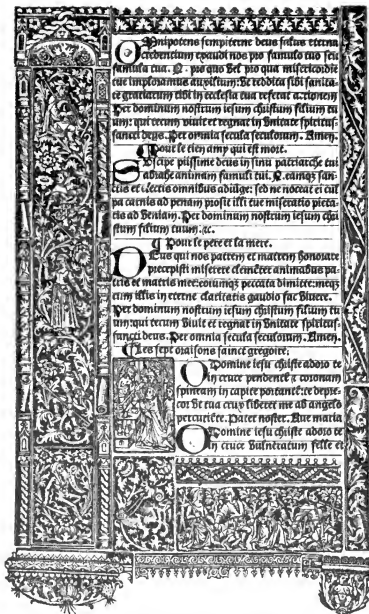 Mnipotens sempiterne deus salus eterna
credencium exaudi nos pro famulo tuo seu
famula tua. N. pro quo vel pro qua misericordie
tue imploramus auxilium: vt reddita sibi sanita-
te gratiarum tibi in ecclesia tua referat actionem
Per dominum nostrum iesum christum filium tu
um: qui tecum viuit et regnat in vnitate spiritus-
sancti deus. Per omnia secula seculorum. Amen.
¶ Pour le tien amy qui est mort.
Suscipe piissime deus in sinu patriarche tui
abrahe animam famuli tui. N. eamque san-
ctis et electis omnibus adiuge: sed ne noceat ei cul
pa carnis ad penam prosit illi tue miseratio pieta-
tis ad veniam. Per dominum nostrum iesum chri
stum filium tuum. &c.
¶ Pour le pere et la mere.
Deus qui nos patrem et matrem honorare
precepisti miserere clemēter animabus pa-
tris et matris mee: eorumqȝ peccata dimitte: meqȝ
cum illis in eterne claritatis gaudio fac viuere.
Per dominum nostrum iesum christum filium tu
um: qui tecum viuit et regnat in vnitate spiritus-
sancti deus. Per omnia secula seculorum. Amen.
¶ Les sept oraisons sainct gregoire.
O Domine iesu christe adoro te
in cruce pendentē ⁊ coronam
spineam in capite portantē: te depre-
cor vt tua crux liberet me ab angelo
percutiēte. Pater noster. Aue maria
O Domine iesu christe adoro te
in cruce vulneratum felle et